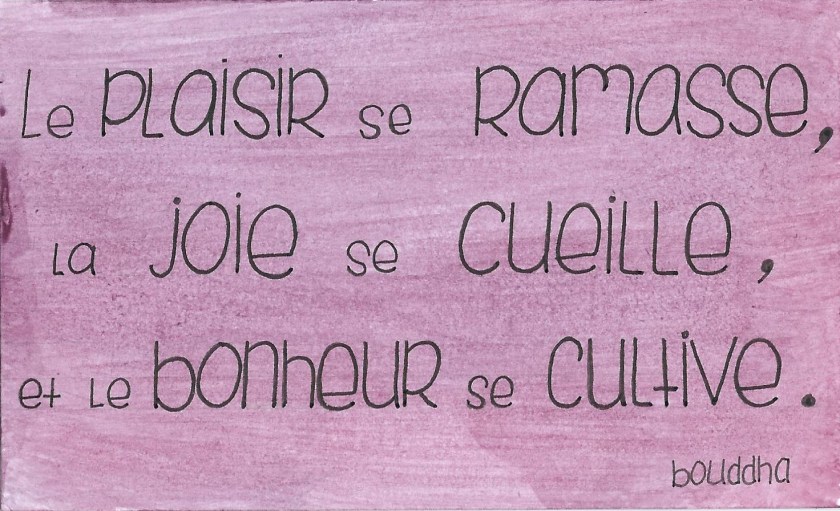 Le PLAISIR se RAMASSE,
La JOIE se CUEILLE,
et Le BONHEUR se CULTIVE.
bouddha